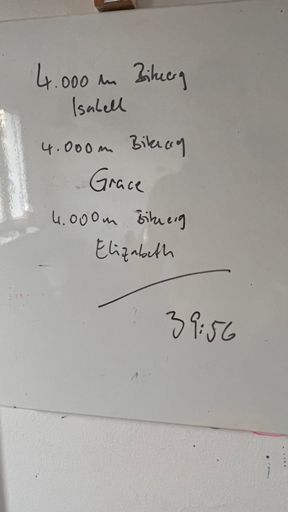 4.000 m Bikeerg
Isabell
4.000m Bikeerg
Grace
4.000m Bikeerg
Elizabeth
39:56